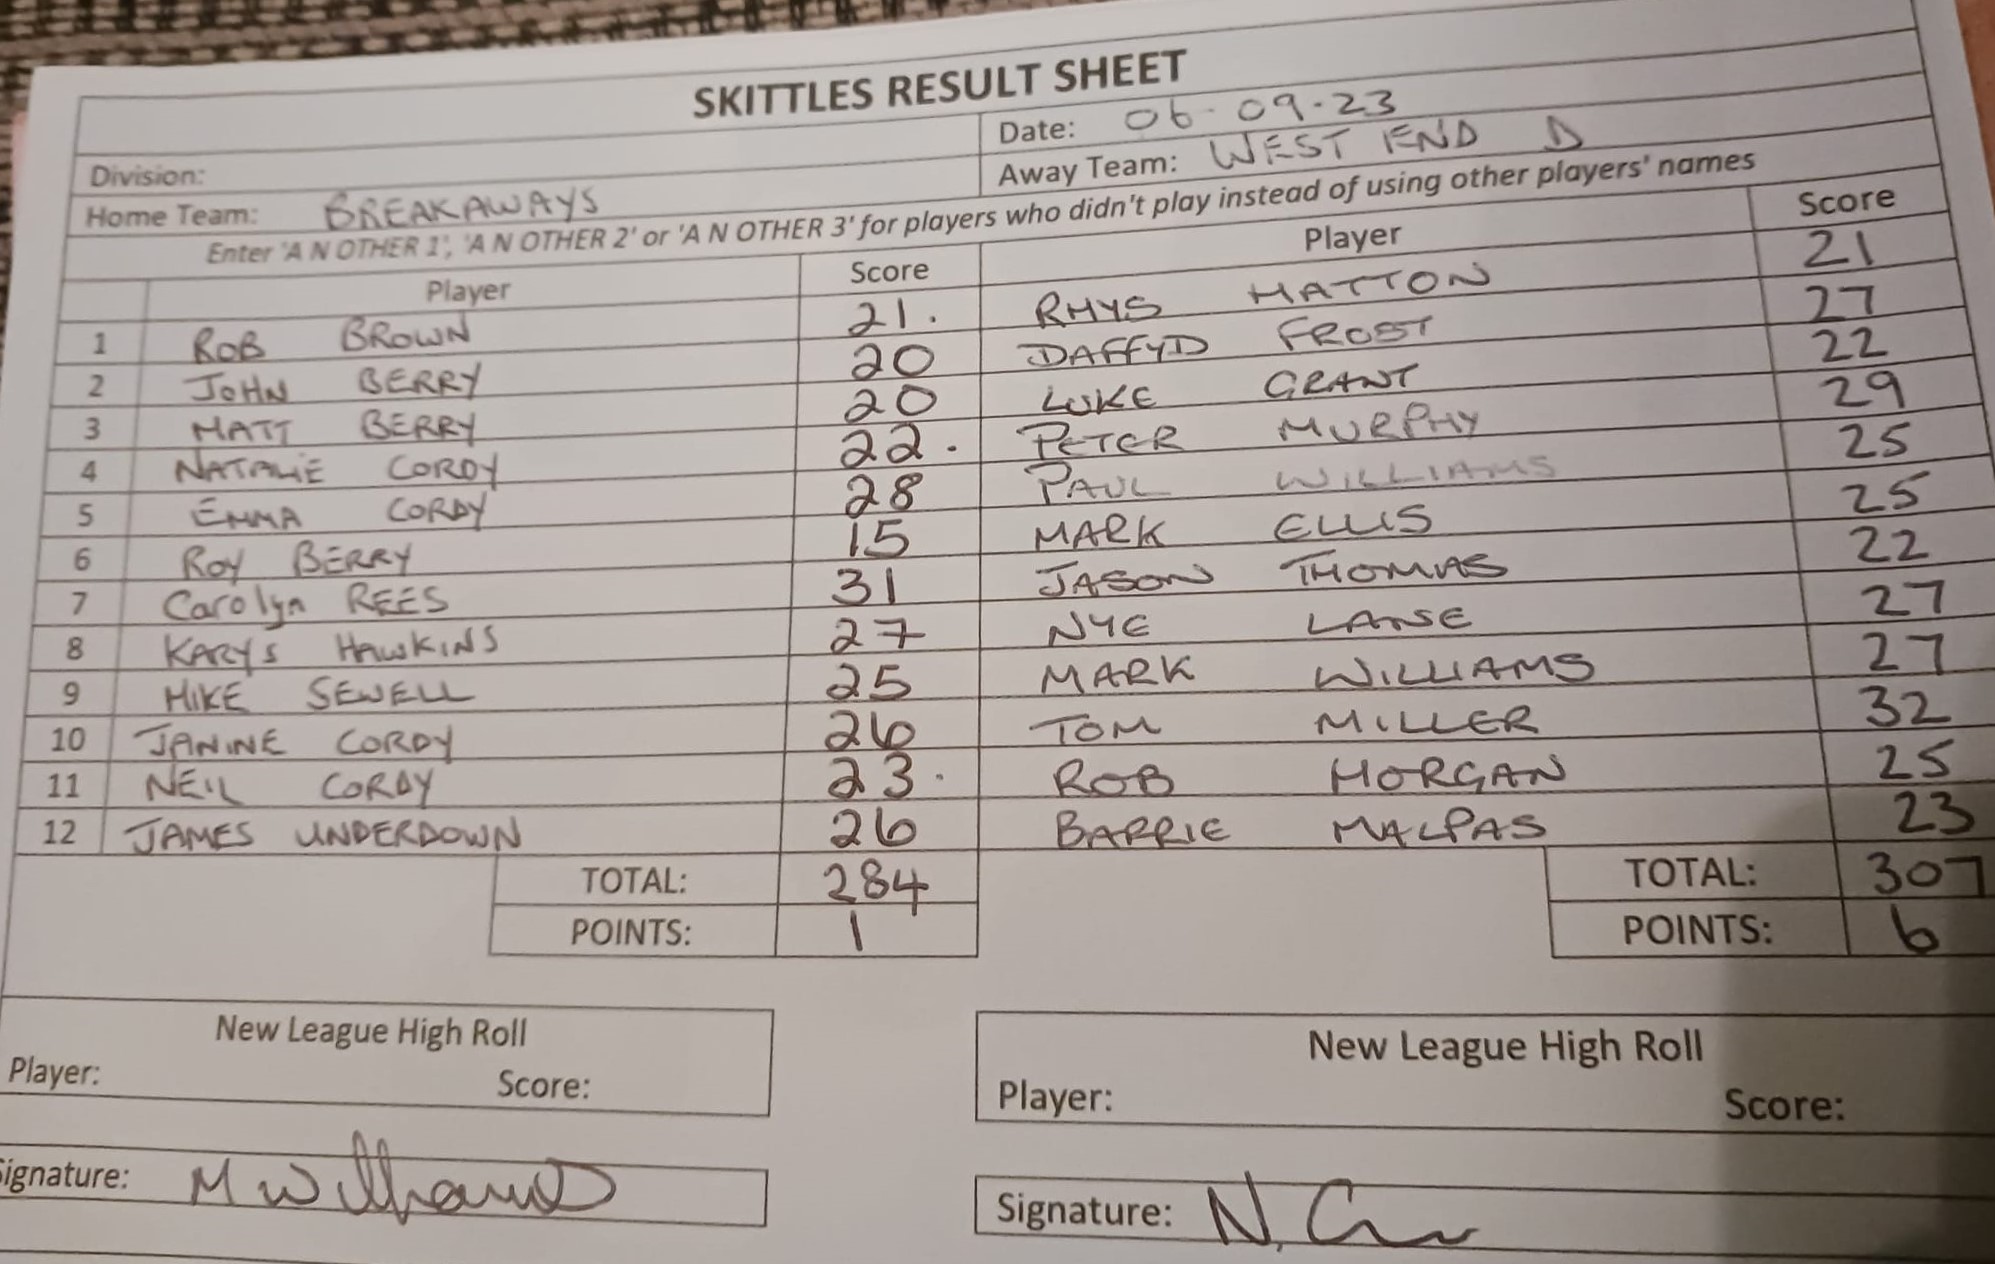 SKITTLES RESULT SHEET
Date: 06-09-23
Division:
Away Team: WEST END D
Home Team: BREAKAWAYS
Enter 'A N OTHER 1', 'A N OTHER 2' or 'A N OTHER 3' for players who didn't play instead of using other players' names
Player Score Player Score
1 ROB BROWN 21. RHYS HATTON 21
2 JOHN BERRY 20 DAFFYD FROST 27
3 MATT BERRY 20 LUKE GRANT 22
4 NATALIE CORDY 22. PETER MURPHY 29
5 EMMA CORDY 28 PAUL WILLIAMS 25
6 ROY BERRY 15 MARK ELLIS 25
7 Carolyn REES 31 JASON THOMAS 22
8 KARYS HAWKINS 27 NYE LANSE 27
9 MIKE SEWELL 25 MARK WILLIAMS 27
10 JANINE CORDY 26 TOM MILLER 32
11 NEIL CORDY 23. ROB MORGAN 25
12 JAMES UNDERDOWN 26 BARRIE MALPAS 23
TOTAL: 284 TOTAL: 307
POINTS: 1 POINTS: 6
New League High Roll New League High Roll
Player: Score: Player: Score:
Signature: M Williams Signature: N.